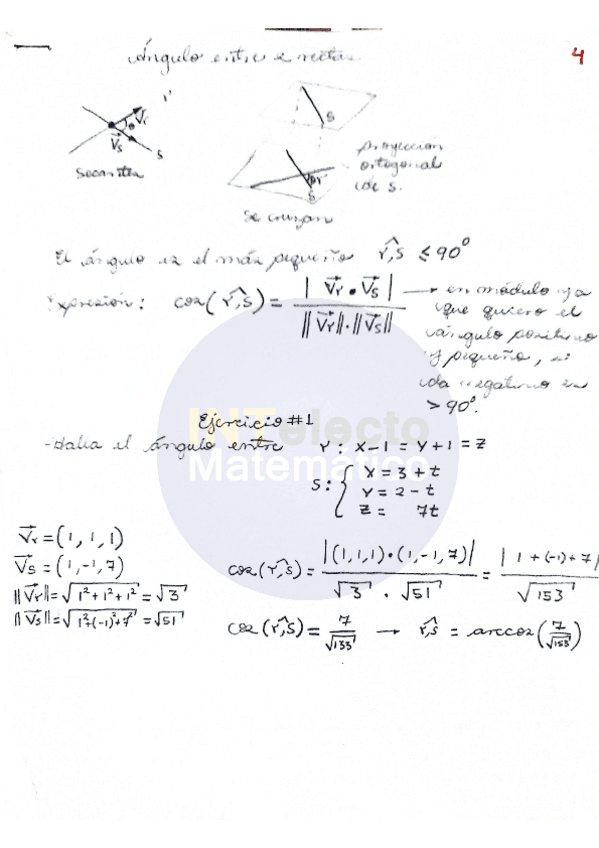 Ángulo entre 2 rectas
4
r
V⃗r
θ
V⃗s
s
Secantes
s
proyección
ortogonal
de s.
θ r
s
Se cruzan
El ángulo es el más pequeño r,^s ≤ 90°
Expresión: cos(r,^s) = |V⃗r • V⃗s| / ||V⃗r||·||V⃗s|| → en módulo ya
que quiero el
ángulo positivo
y pequeño, si
da negativo es
> 90°.
INTelecto
Matemático
Ejercicio #1
-Halla el ángulo entre r: x-1 = y+1 = z
s: { x = 3+t
y = 2-t
z = 7t
V⃗r = (1, 1, 1)
V⃗s = (1, -1, 7)
||V⃗r|| = √(1²+1²+1²) = √3
||V⃗s|| = √(1²+(-1)²+7²) = √51
cos(r,^s) = |(1,1,1)•(1,-1,7)| / √3 · √51 = |1+(-1)+7| / √153
cos(r,^s) = 7/√153 → r,^s = arccos(7/√153)